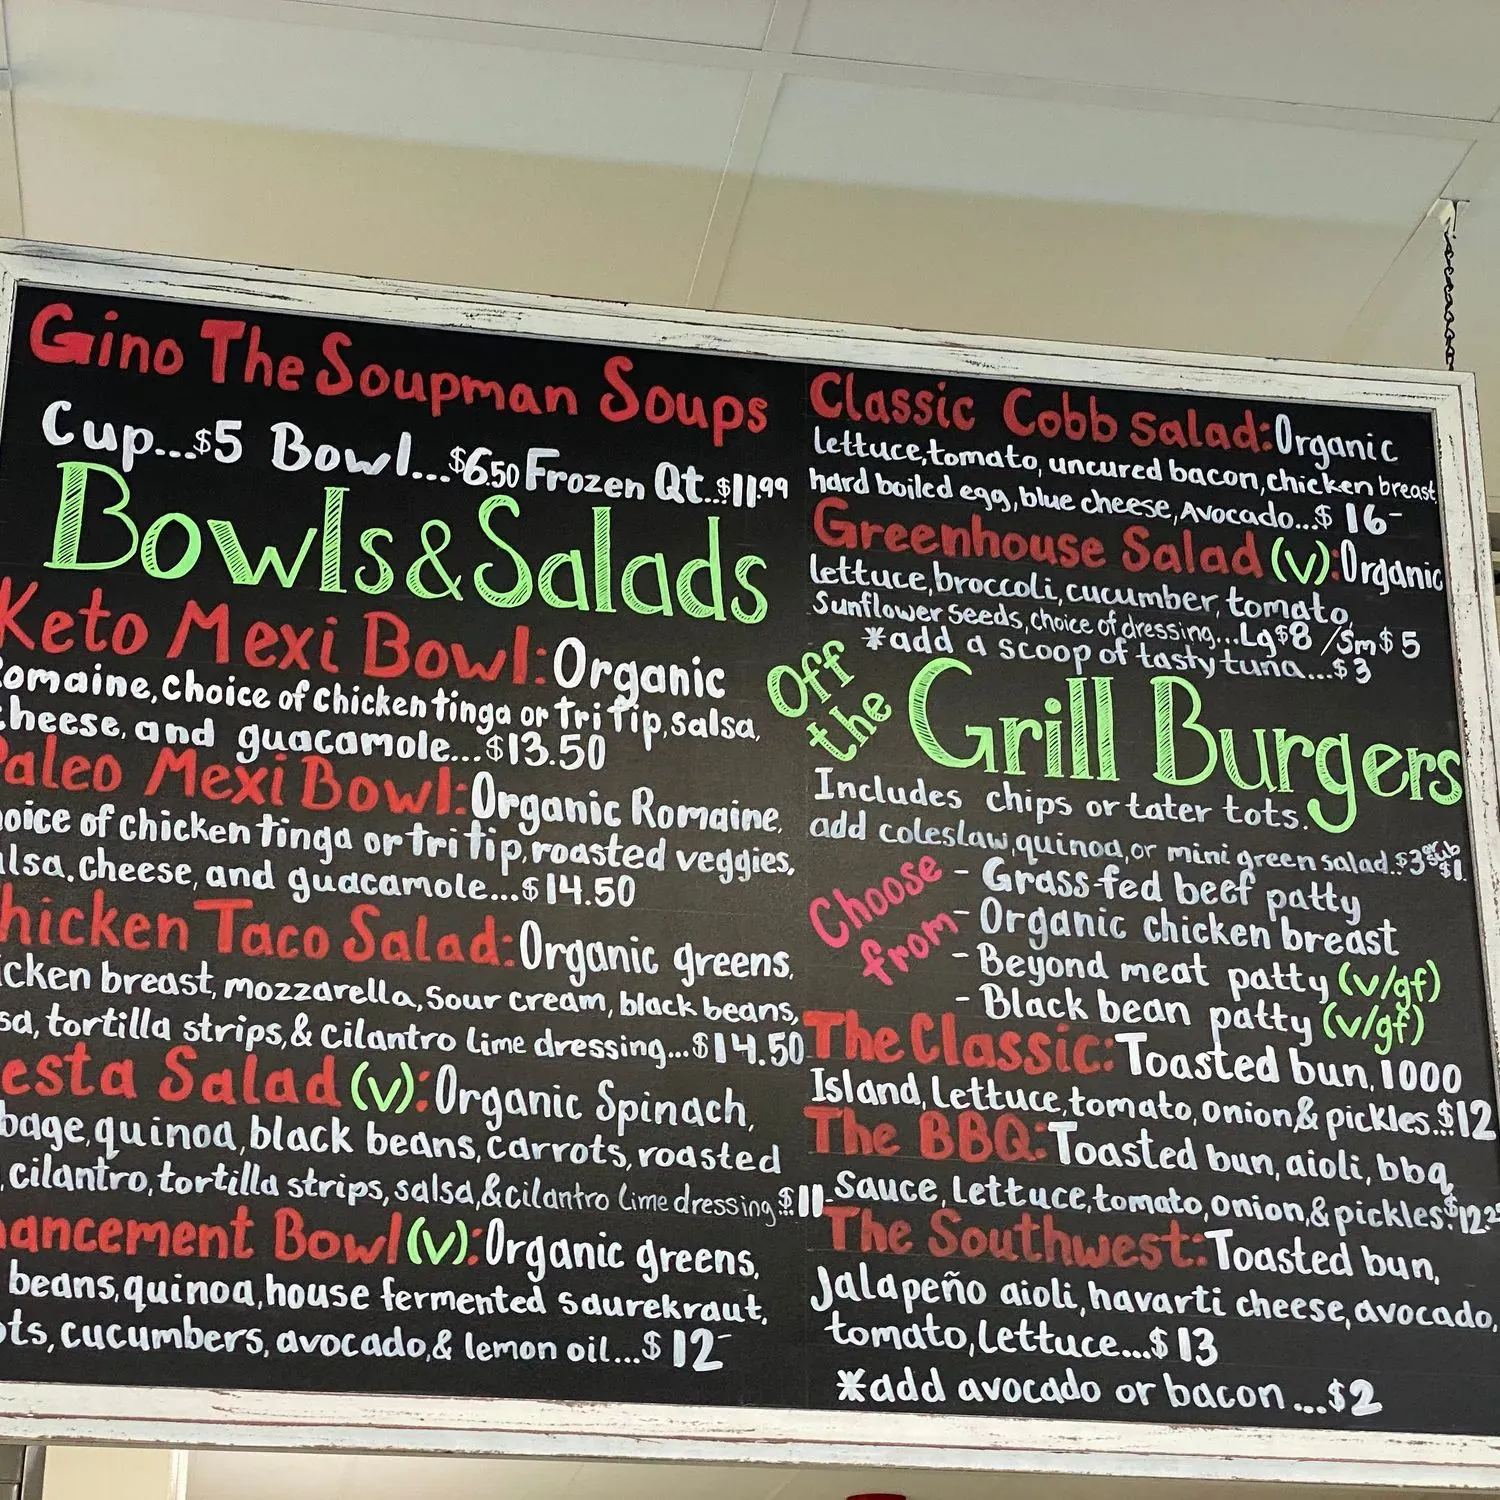 Gino The Soupman Soups
Cup...$5 Bowl...$6.50 Frozen Qt..$11.99
Bowls & Salads
Keto Mexi Bowl: Organic
Romaine, choice of chicken tinga or Tri Tip, salsa,
cheese, and guacamole...$13.50
Paleo Mexi Bowl: Organic Romaine,
choice of chicken tinga or Tri Tip, roasted veggies,
salsa, cheese, and guacamole...$14.50
Chicken Taco Salad: Organic greens,
chicken breast, mozzarella, sour cream, black beans,
salsa, tortilla strips, & cilantro lime dressing...$14.50
esta Salad (v): Organic Spinach,
bage, quinoa, black beans, carrots, roasted
, cilantro, tortilla strips, salsa, & cilantro lime dressing..$11-
ancement Bowl (v): Organic greens,
beans, quinoa, house fermented saurekraut,
ots, cucumbers, avocado, & lemon oil...$12-
Classic Cobb Salad: Organic
lettuce, tomato, uncured bacon, chicken breast,
hard boiled egg, blue cheese, Avocado...$16-
Greenhouse Salad (v): Organic
lettuce, broccoli, cucumber, tomato,
Sunflower seeds, choice of dressing...Lg $8 / Sm $5
*add a scoop of tasty tuna...$3
Off the Grill Burgers
Includes chips or tater tots.
add coleslaw, quinoa, or mini green salad..$3 or sub $1.
Choose from
- Grass-fed beef patty
- Organic chicken breast
- Beyond meat patty (v/gf)
- Black bean patty (v/gf)
The Classic: Toasted bun, 1000
Island, Lettuce, tomato, onion & pickles...$12
The BBQ: Toasted bun, aioli, bbq
sauce, Lettuce, tomato, onion, & pickles..$12.25
The Southwest: Toasted bun,
Jalapeño aioli, havarti cheese, avocado,
tomato, lettuce...$13
*add avocado or bacon...$2